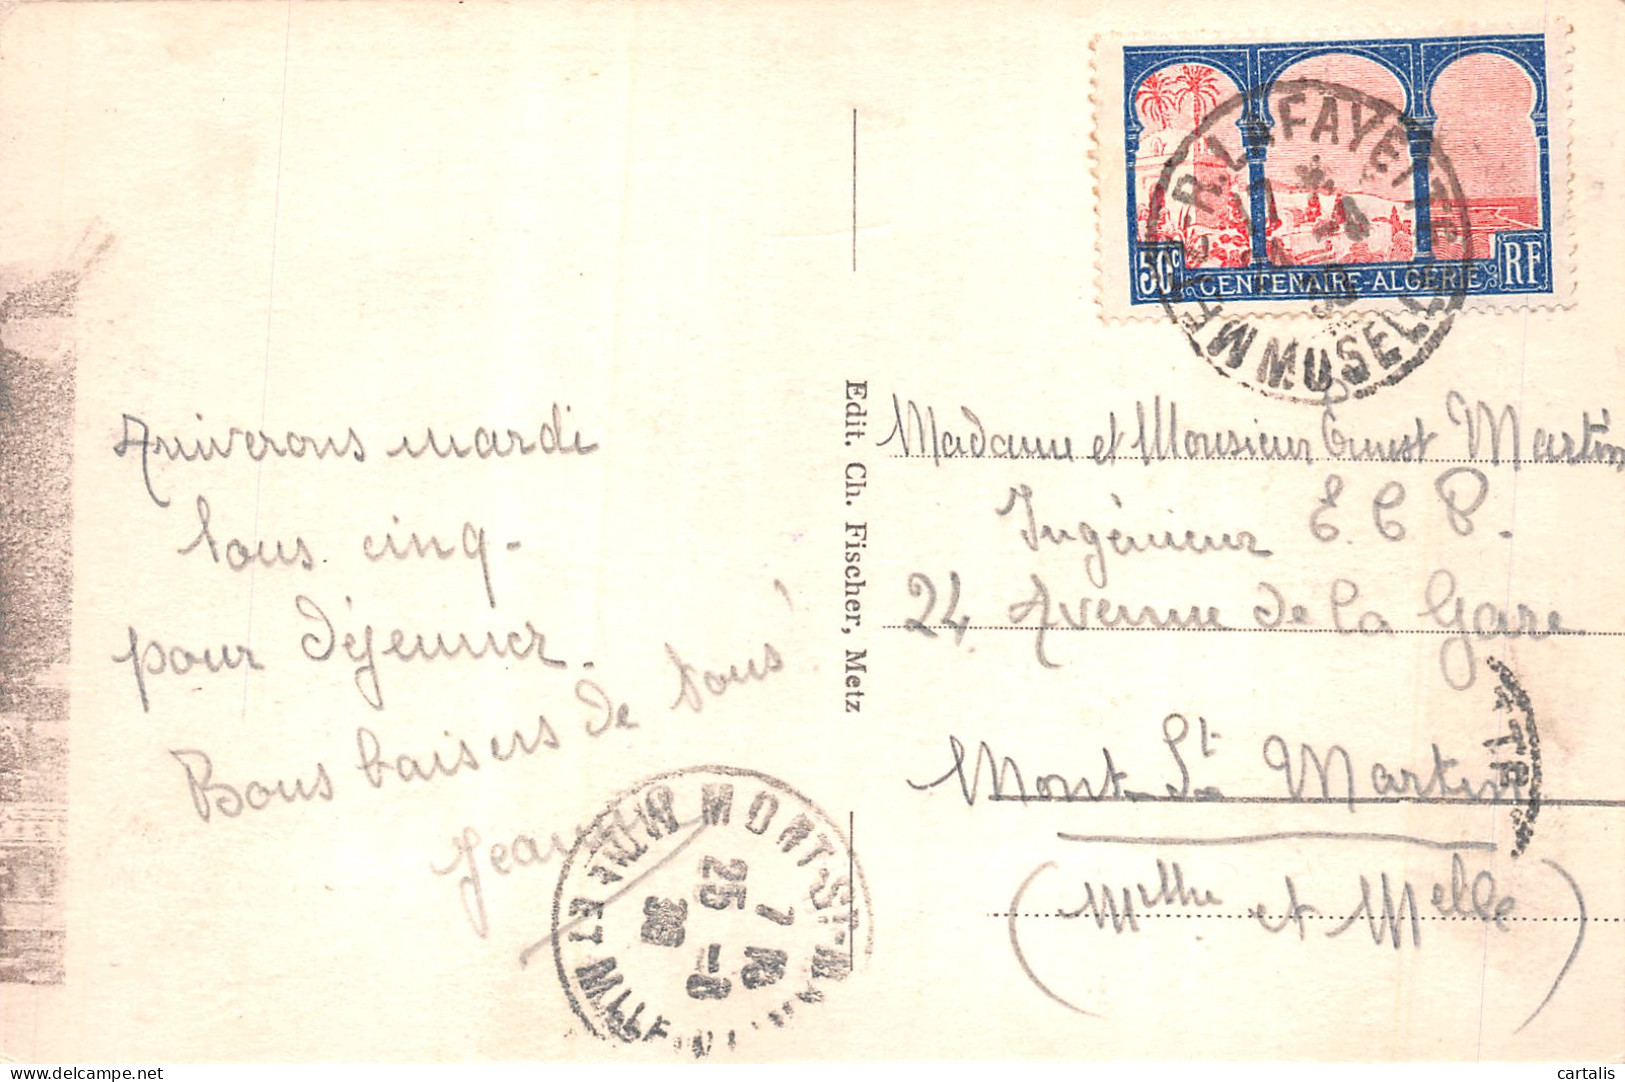 Arriverons mardi
tous cinq -
pour déjeuner.
Bons baisers de tous !
Edit. Ch. Fischer, Metz
50c
CENTENAIRE-ALGÉRIE
RF
R. LAFAYETTE
METZ MOSELLE
Madame et Monsieur Ernest Martin
Ingénieur E. C. P.
24 Avenue de la Gare
Mont St Martin
(Mthe et Melle)
MONT-ST-MARTIN
MEURTHE ET MLLE
7
25 - 8
30
delcampe.net
cartalis